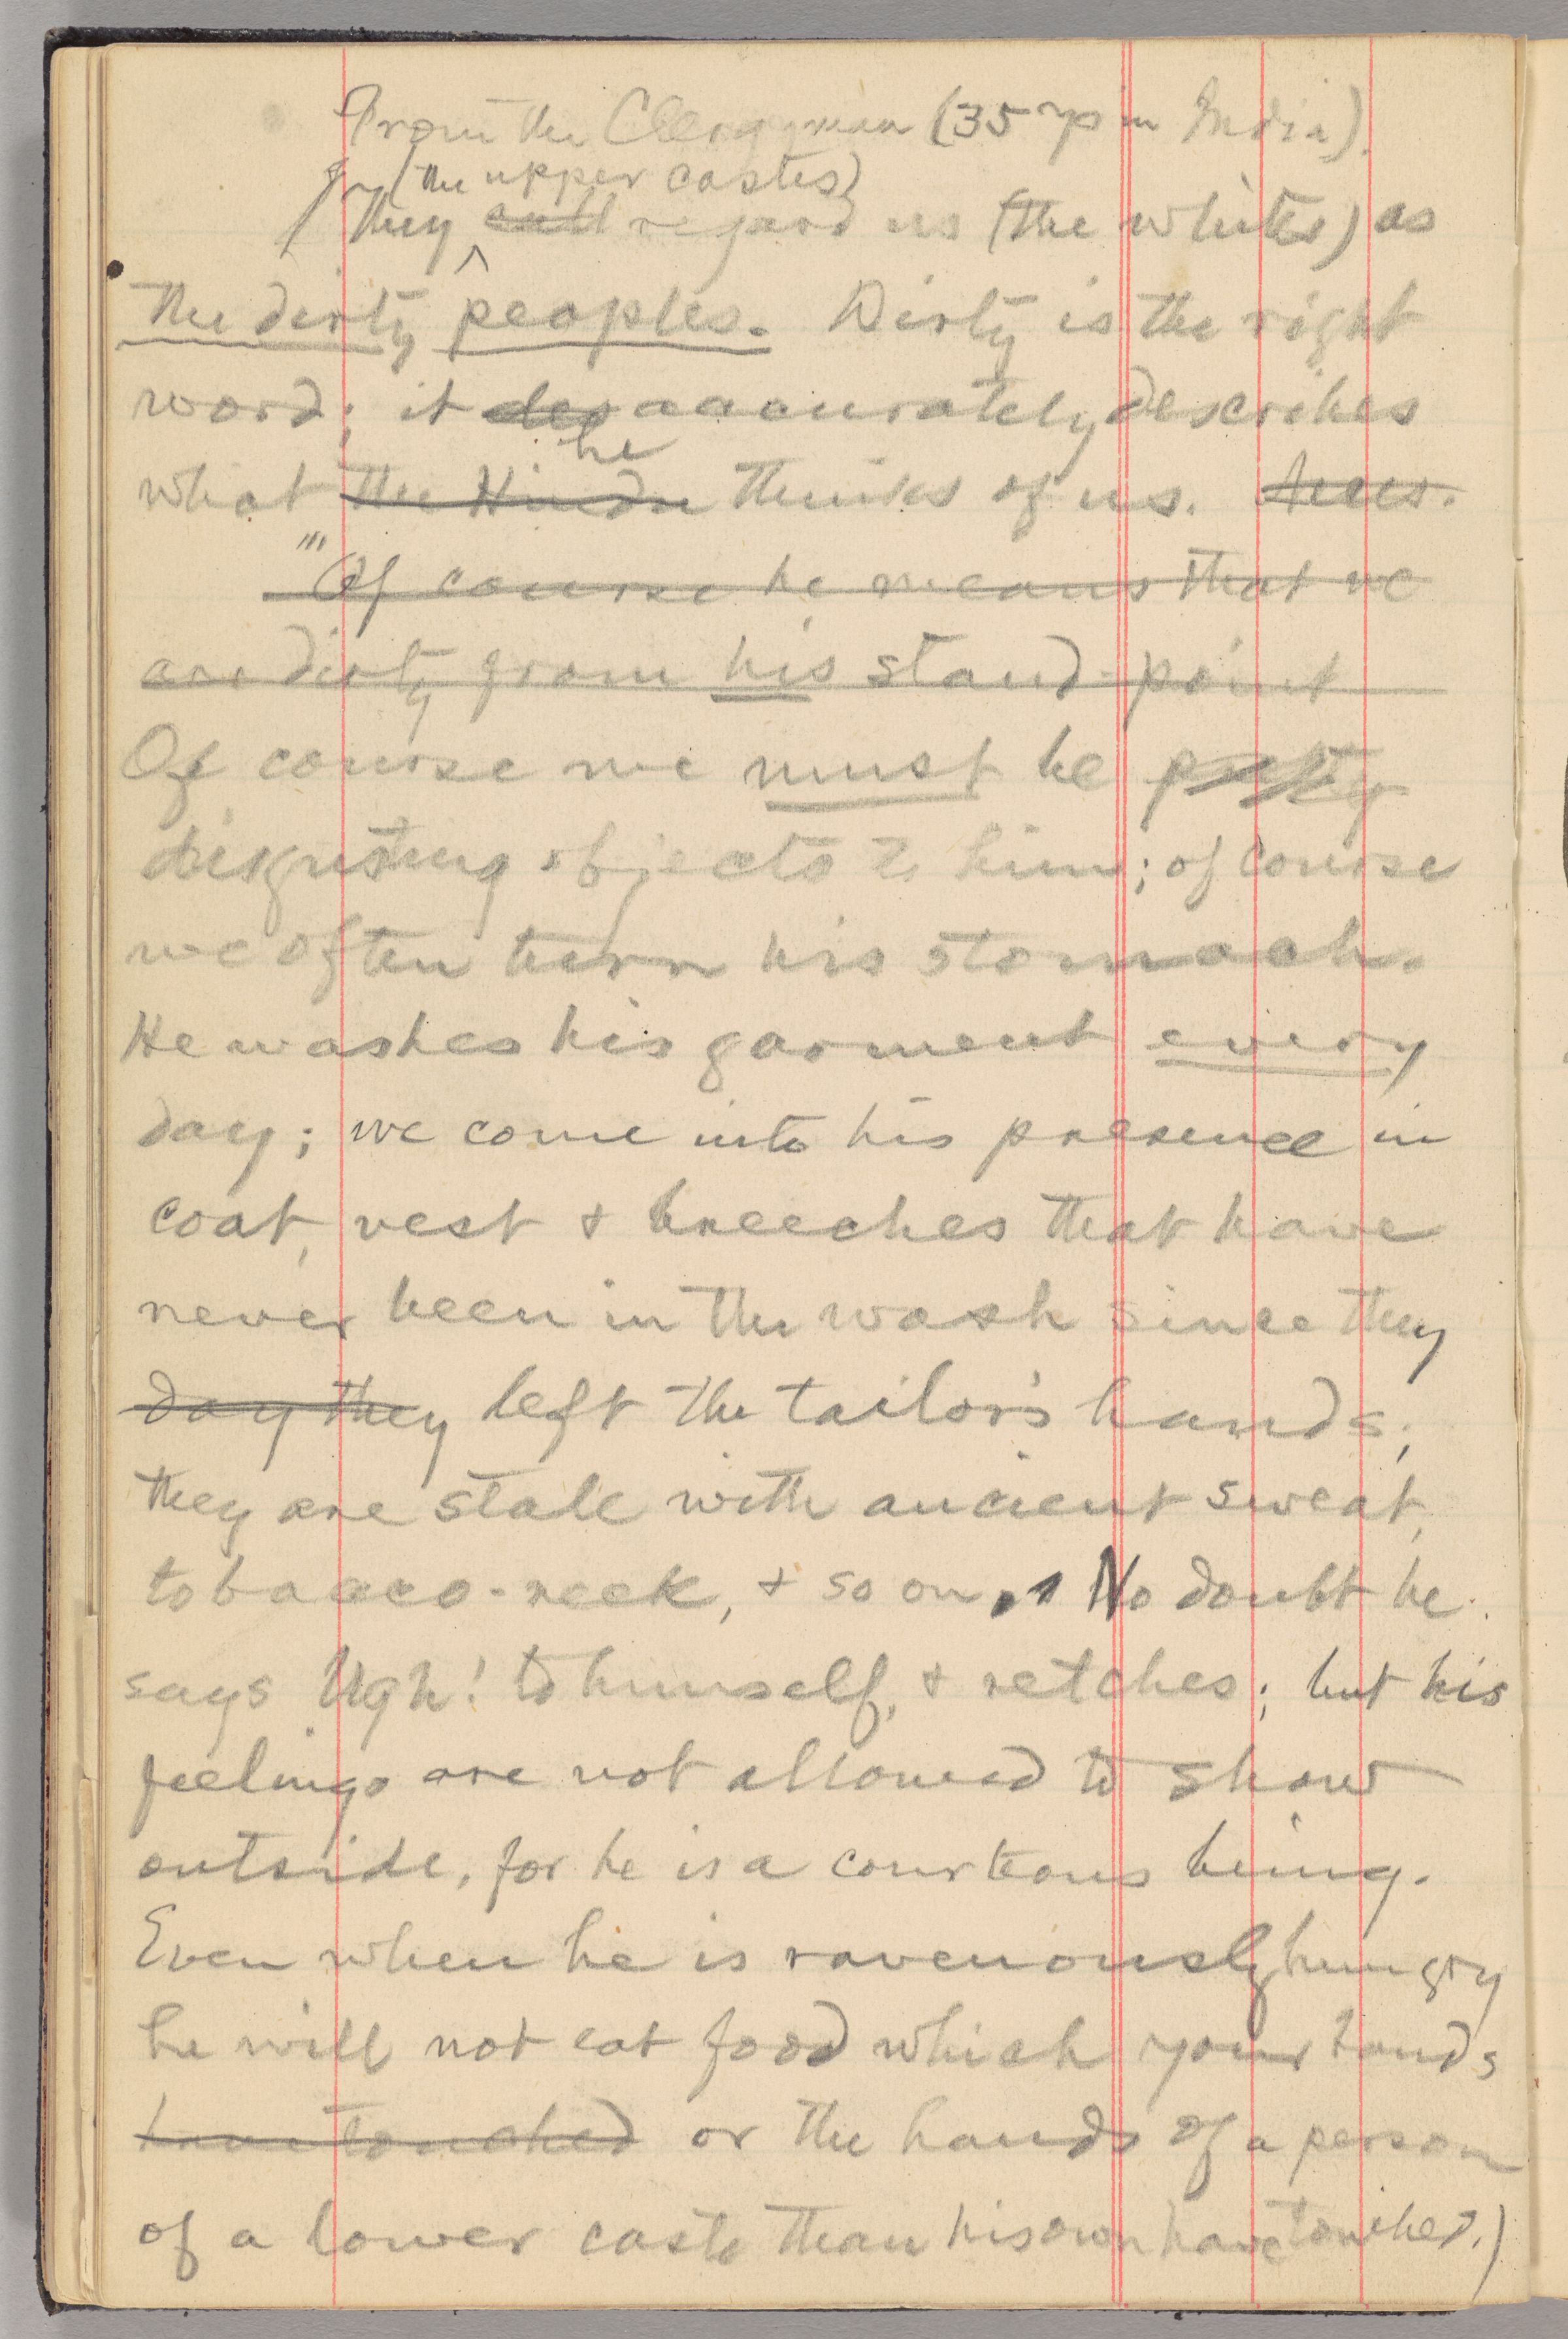 From the Clergyman (35 yr in India).
(the upper castes)
They call regard us (the whites) as
the dirty peoples. Dirty is the right
word; it des accurately describes
he
what the Hindu thinks of us.
"Of course he means that we
are dirty from his stand-point
Of course we must be pretty
disgusting objects to him; of course
we often turn his stomach.
He washes his garment every
day; we come into his presence in
coat, vest & breeches that have
never been in the wash since they
day they left the tailor's hands;
they are stale with ancient sweat,
tobacco-reek, & so on. No doubt he
says Ugh! to himself, & retches; but his
feelings are not allowed to show
outside, for he is a courteous being.
Even when he is ravenously hungry
he will not eat food which your hands
have touched or the hands of a person
of a lower caste than his own have touched.)